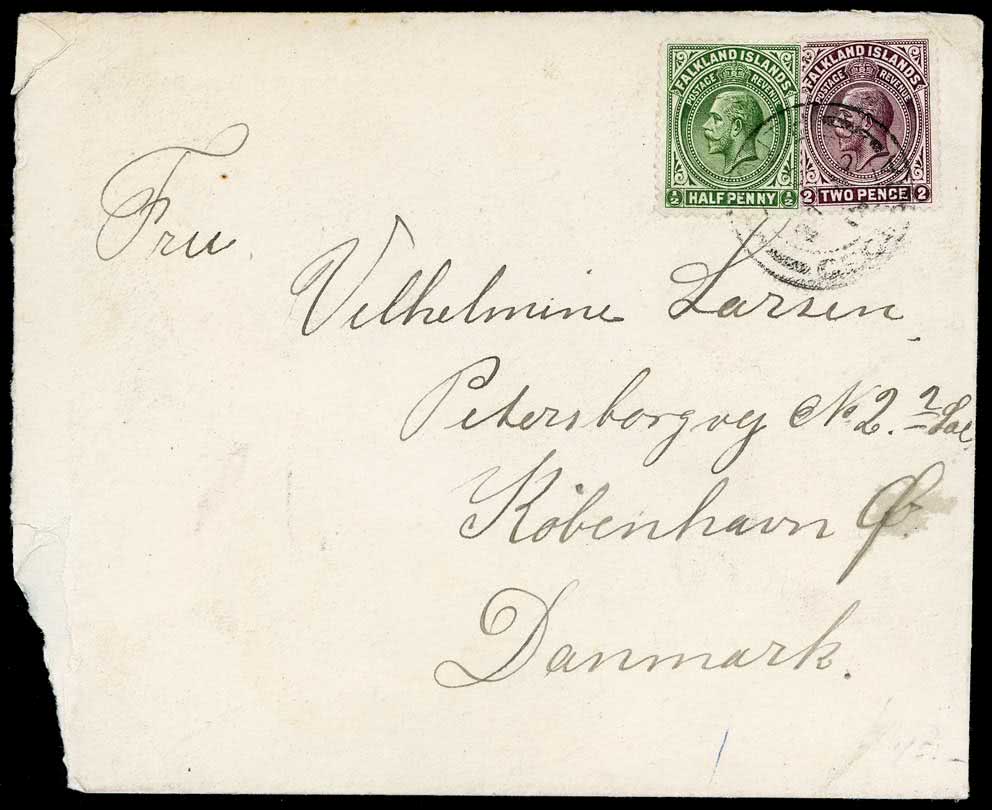 FALKLAND ISLANDS
POSTAGE REVENUE
½ HALF PENNY ½
FALKLAND ISLANDS
POSTAGE REVENUE
2 TWO PENCE 2
Fru
Vilhelmine Larsen.
Petersborgvej No 2. 2 Sal
København Ø.
Danmark.